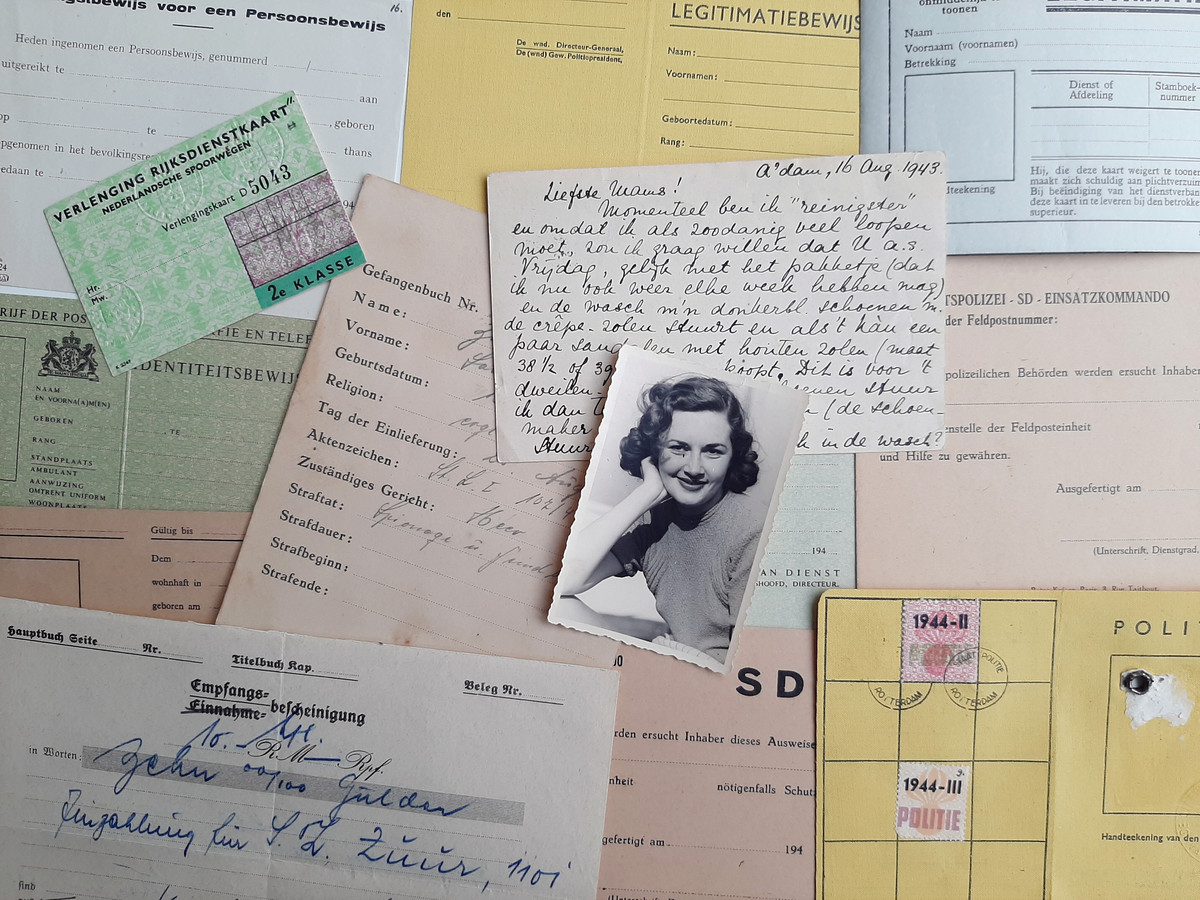 gsbewijs voor een Persoonsbewijs
16.
Heden ingenomen een Persoonsbewijs, genummerd /
uitgereikt te
aan
op te , geboren
opgenomen in het bevolkingsre
thans
edaan te
194
den
De wnd. Directeur-Generaal,
De (wnd) Gew. Politiepresident,
LEGITIMATIEBEWIJS
Naam:
Voornamen:
Geboortedatum:
Rang:
toonen
Naam
Voornaam (voornamen)
Betrekking
Dienst of
Afdeeling
Stamboek-
nummer
dteekening
Hij, die deze kaart weigert te toonen
maakt zich schuldig aan plichtverzu
Bij beëindiging van het dienstverban
deze kaart in te leveren bij den betrokke
superieur.
VERLENGING RIJKSDIENSTKAART
NEDERLANDSCHE SPOORWEGEN
Verlengingskaart D 5043
Hr.
Mw.
2e KLASSE
A'dam, 16 Aug. 1943.
Liefste Mams!
Momenteel ben ik "reinigster"
en omdat ik als zoodanig veel loopen
moet, zou ik graag willen dat U a.s.
Vrijdag, gelijk met het pakketje (dat
ik nu ook weer elke week hebben mag)
en de wasch m'n donkerbl. schoenen m.
de crêpe-zolen stuurt en als 't kàn een
paar sandalen met houten zolen (maat
38½ of 39 koopt. Dit is voor 't
dweilen. schoenen stuur
ik dan (de schoen-
maker
Stuur k in de wasch?
RIJF DER POS
AFIE EN TELEF
IDENTITEITSBEWIJ
NAAM
EN VOORNA(A)M(EN)
GEBOREN
TE
RANG
STANDPLAATS
AMBULANT
AANWIJZING
OMTRENT UNIFORM
WOONPLAATS
Gefangenbuch Nr.
Name:
Vorname:
Geburtsdatum:
Religion:
Tag der Einlieferung:
Aktenzeichen: St. L. I
Zuständiges Gericht: Heer
Straftat: Spionage u.
Strafdauer:
Strafbeginn:
Strafende:
TSPOLIZEI - SD - EINSATZKOMMANDO
der Feldpostnummer:
polizeilichen Behörden werden ersucht Inhaber
enstelle der Feldposteinheit
und Hilfe zu gewähren.
Ausgefertigt am
(Unterschrift, Dienstgrad.
194
AN DIENST
HOOFD, DIRECTEUR.
Gültig bis
Dem
wohnhaft in
geboren am
Hauptbuch Seite Nr.
Titelbuch Kap.
Beleg Nr.
Empfangs-
Einnahme-bescheinigung
10.-
RM Rpf.
in Worten: zehn 00/100 Gulden
Einzahlung für S. Z. Zuur, 1101
find
SD
rden ersucht Inhaber dieses Ausweise
nheit nötigenfalls Schutz
gefertigt am 194
1944-II
POLITIE
ROTTERDAM
ROTTERDAM
1944-III
POLITIE
POLIT
Handteekening van den